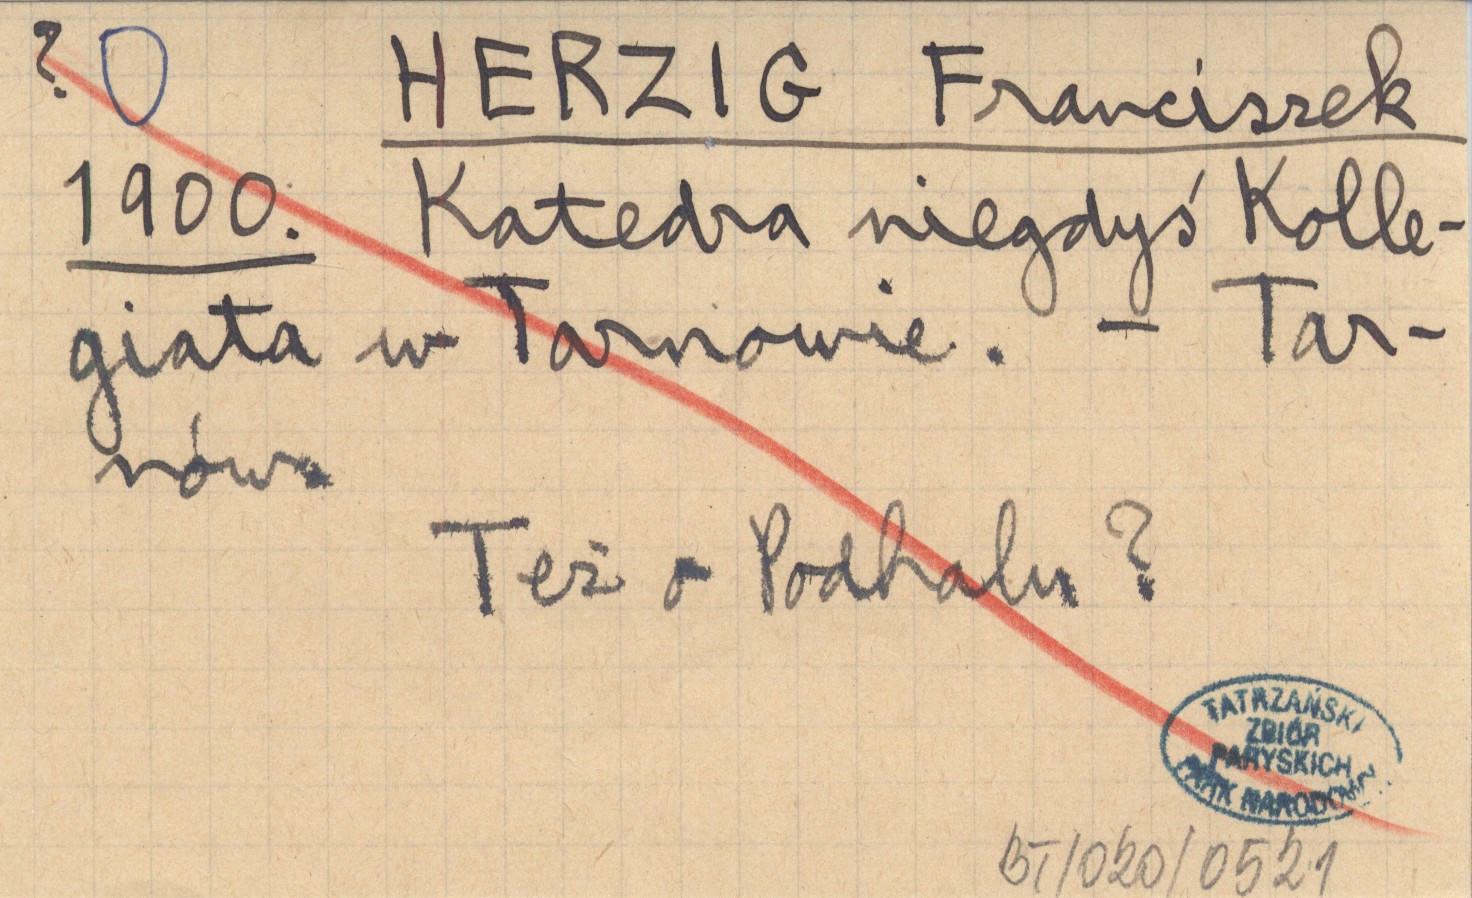 ? HERZIG Franciszek
1900. Katedra niegdyś Kolle-
giata w Tarnowie. – Tar-
nów.
Też o Podhalu?
TATRZAŃSKI
ZBIÓR
PARYSKICH
PARK NARODOWY
BT/020/0521